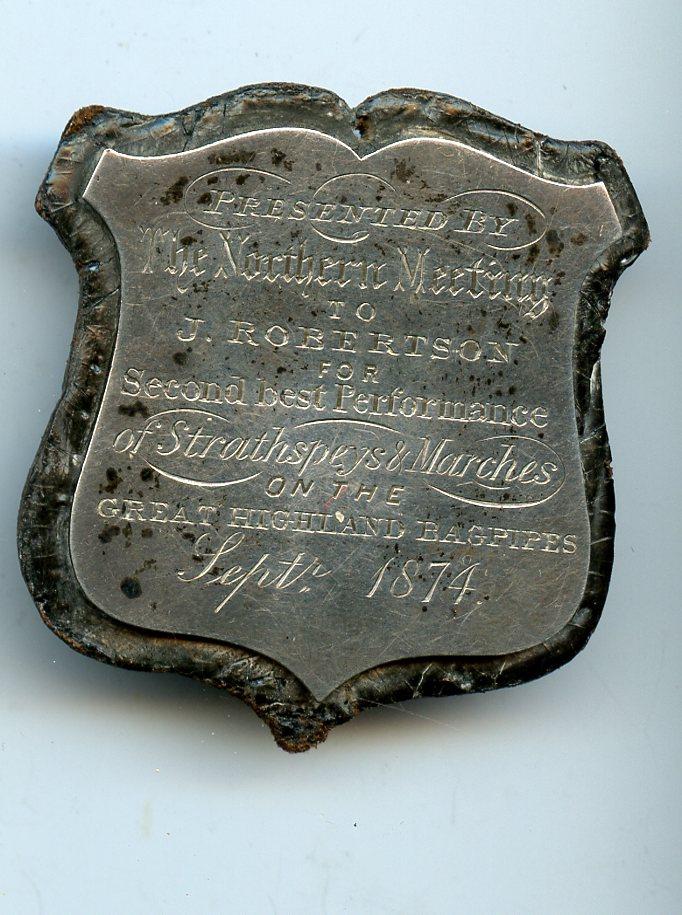 PRESENTED BY
The Northern Meeting
TO
J. ROBERTSON
FOR
Second best Performance
of Strathspeys & Marches
ON THE
GREAT HIGHLAND BAGPIPES
Septr. 1874.